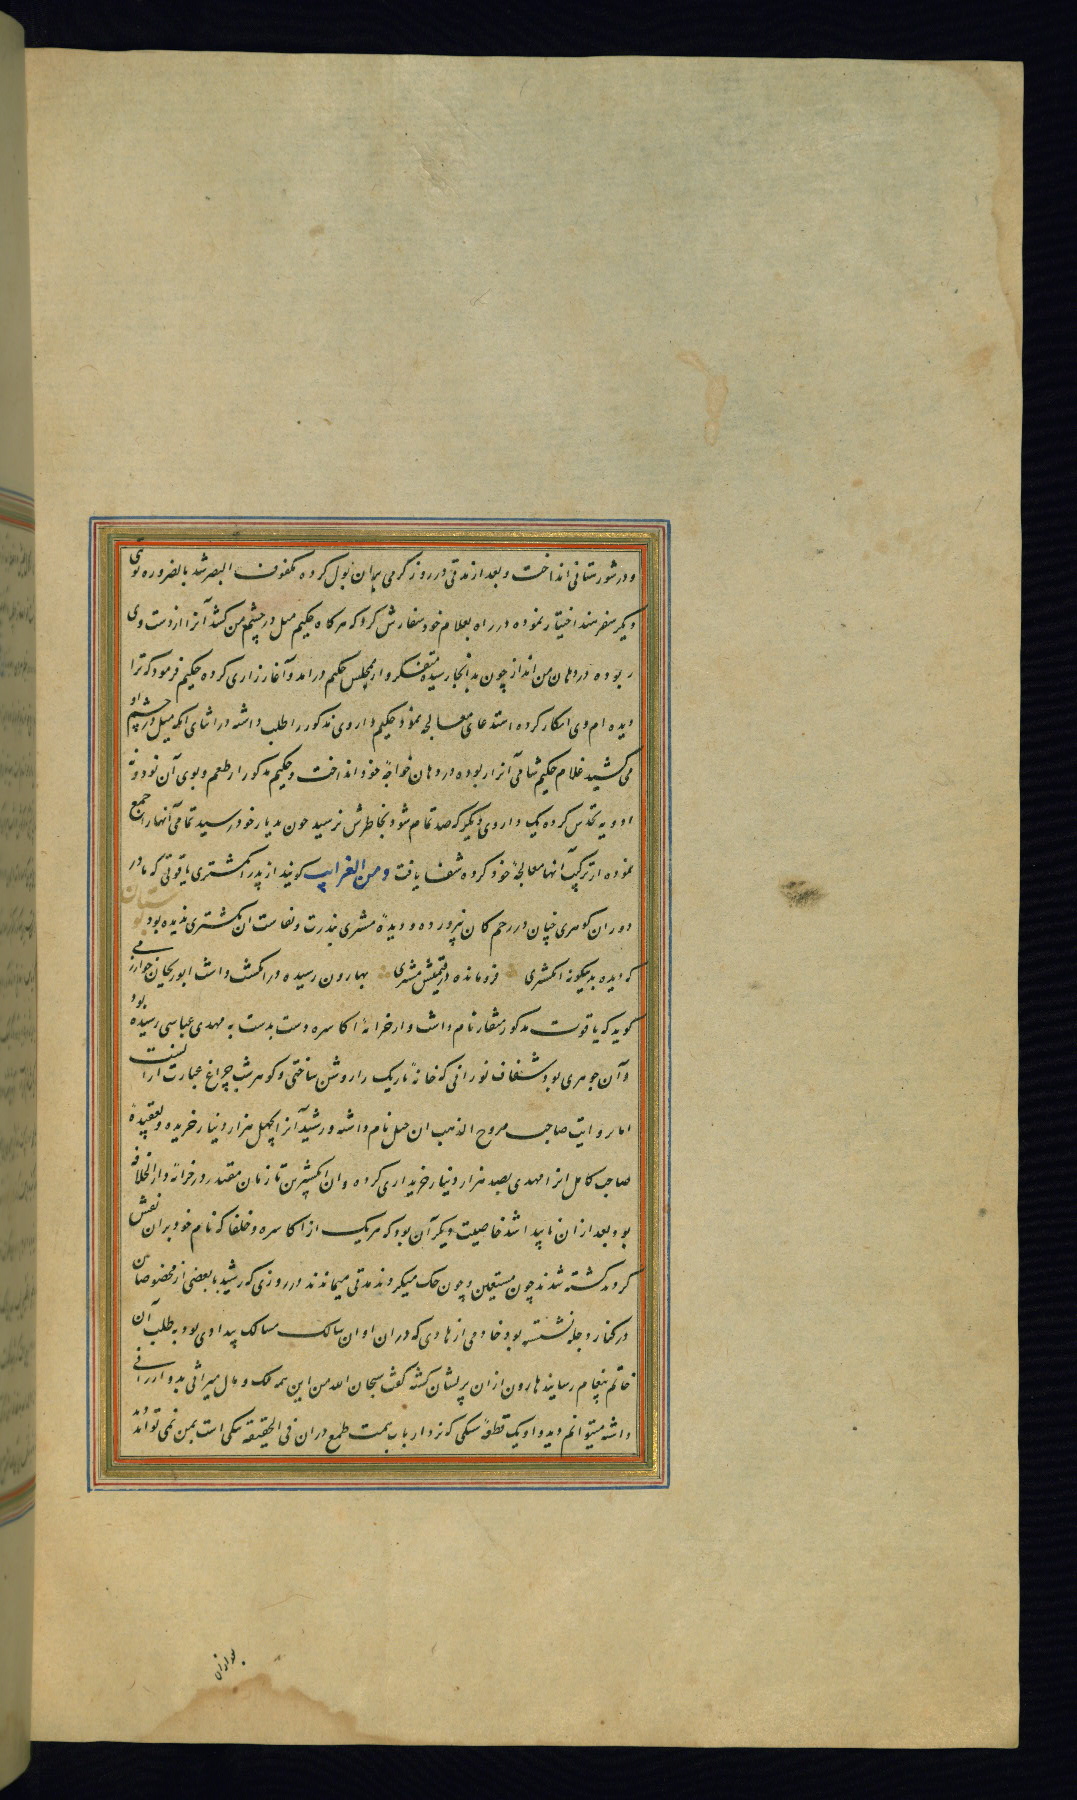 و در شورستانی انداخت و بعد از مدتی در روز گرمی بران بول کرده مکفوف البصر شد بالضروره نوبتی
دیکر سفر هند اختیار نموده در راه بغلام خود سفارش کرد که هر کاه حکیم میل در چشم من کشد آنرا از دست وی
ربوده در دهان من انداز چون بدانجا رسیده متفکروار بمجلس حکیم درامد و آغاز زاری کرده حکیم فرمود که ترا
دیده ام وی انکار کرده استدعای معالجه نمود حکیم داروی مذکور را طلب داشته در اثنای انکه میل در چشم او
می کشید غلام حکیم شامی آنرا ربوده در دهان خواجهٔ خود انداخت و حکیم مذکور از طعم و بوی آن نود و نه
ادویه تحدس کرده یک داروی دیکر که صد تمام شود بخاطرش نرسید چون بدیار خود رسید تمامی آنها را جمع
نموده از ترکیب آنها معالجهٔ خود کرده شفا یافت ومن الغرایب کویند از پدر انکشتری یاقوتی که مادر
دوران کوهری چنان در رحم کان نپرورده و دیدهٔ مشتری بندرت و نفاست ان انکشتری ندیده بود
که دیده بدینکونه انکشتری فرومانده در قیمتش مشتری بهارون رسیده در انکشت داشت ابوریحان خوارزمی
کوید که یاقوت مذکور منقار نام داشت و از خزانهٔ اکاسره دست بدست به مهدی عباسی رسیده بود
و آن جوهری بود شفاف نورانی که خانهٔ تاریک را روشن ساختی و کوهر شب چراغ عبارت از انست
اما روایت صاحب مروج الذهب ان جبل نام داشته و رشید آنرا بچهل هزار دینار خریده و بعقیدهٔ
صاحب کامل انرا مهدی بصد هزار دینار خریداری کرده و ان انکشترین تا زمان مقتدر در خزانه دار الخلافه
بود بعد از ان ناپیدا شد خاصیت دیکر آن بود که هر یک از اکاسره و خلفا که نام خود بران نقش
کردند کشته شدند چون مستعین و چون حک میکردند مدتی میماندند در روزی که رشید با بعضی از مخصوصان
در کنار دجله نشسته بود خادمی از هادی که دران اوان سالک مسالک بیدادی بود به طلب آن
خاتم پیغام رسانید هارون ازان پریشان کشته کفت سبحان الله من این همه ملک و مال میراثی بدو ارزانی
داشته میتوانم دید و او یک قطعهٔ سنکی که نزد ارباب همت طمع دران فی الحقیقه سبکی است بمن نمی تواند